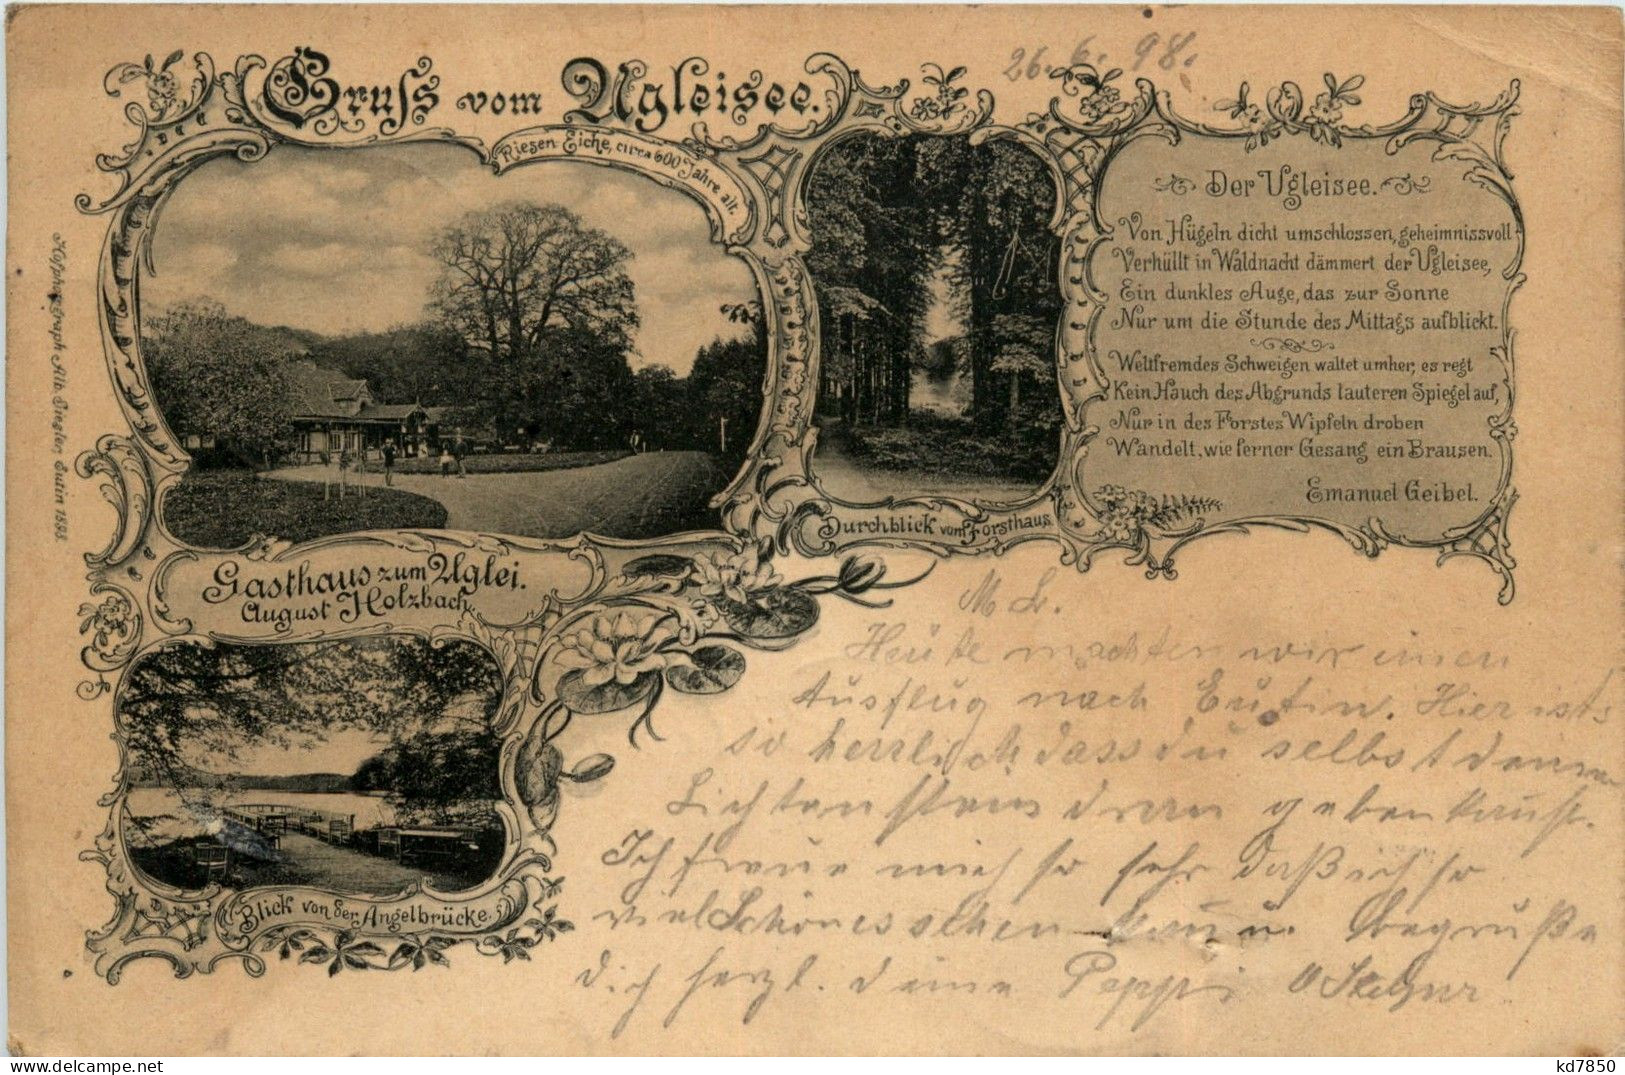 26. 6. 98.
Gruss vom Ugleisee.
Riesen-Eiche, circa 600 Jahre alt.
Der Ugleisee.
Von Hügeln dicht umschlossen, geheimnissvoll
Verhüllt in Waldnacht dämmert der Ugleisee,
Ein dunkles Auge, das zur Sonne
Nur um die Stunde des Mittags aufblickt.
Weltfremdes Schweigen waltet umher, es regt
Kein Hauch des Abgrunds lauteren Spiegel auf,
Nur in des Forstes Wipfeln droben
Wandelt, wie ferner Gesang ein Brausen.
Emanuel Geibel.
Durchblick vom Forsthaus.
Gasthaus zum Uglei.
August Holzbach.
Blick von der Angelbrücke.
Hofphotograph Alb. Giegler, Eutin 1898.
M L.
Heute machten wir einen
Ausflug nach Eutin. Hier ists
so herrlich dass du selbst deinen
Lichtenstein dran geben kannst.
Ich freue mich so sehr daß ich so
viel Schönes sehen kann u. begrüße
dich herzl. deine Peppi
kd7850